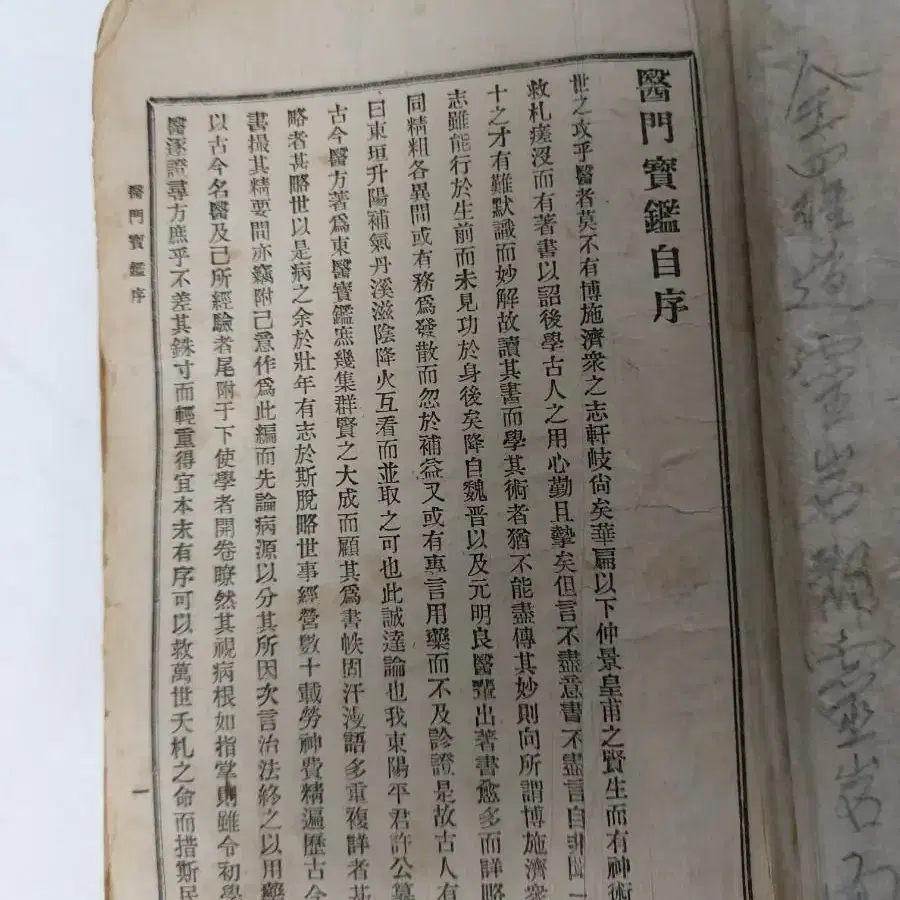 醫門寶鑑自序
世之攻乎醫者莫不有博施濟衆之志軒岐尙矣華扁以下仲景皇甫之賢生而有神術
救札瘥沒而有著書以詔後學古人之用心勤且摯矣但言不盡意書不盡言自非聞一
十之才有難默識而妙解故讀其書而學其術者猶不能盡傳其妙則向所謂博施濟衆
志雖能行於生前而未見功於身後矣降自魏晋以及元明良醫輩出著書愈多而詳略
同精粗各異間或有務爲發散而忽於補益又或有專言用藥而不及診證是故古人有
曰東垣升陽補氣丹溪滋陰降火互看而並取之可也此誠達論也我東陽平君許公纂
古今醫方著爲東醫寶鑑庶幾集群賢之大成而顧其爲書帙固汗漫語多重複詳者甚
略者甚略世以是病之余於壯年有志於斯脫略世事經營數十載勞神費精遍歷古今
書撮其精要間亦竊附己意作爲此編而先論病源以分其所因次言治法終之以用藥
以古今名醫及己所經驗者尾附于下使學者開卷瞭然其視病根如指掌則雖令初學
醫逐證尋方庶乎不差其銖寸而輕重得宜本末有序可以救萬世夭札之命而措斯民
醫門寶鑑序 一